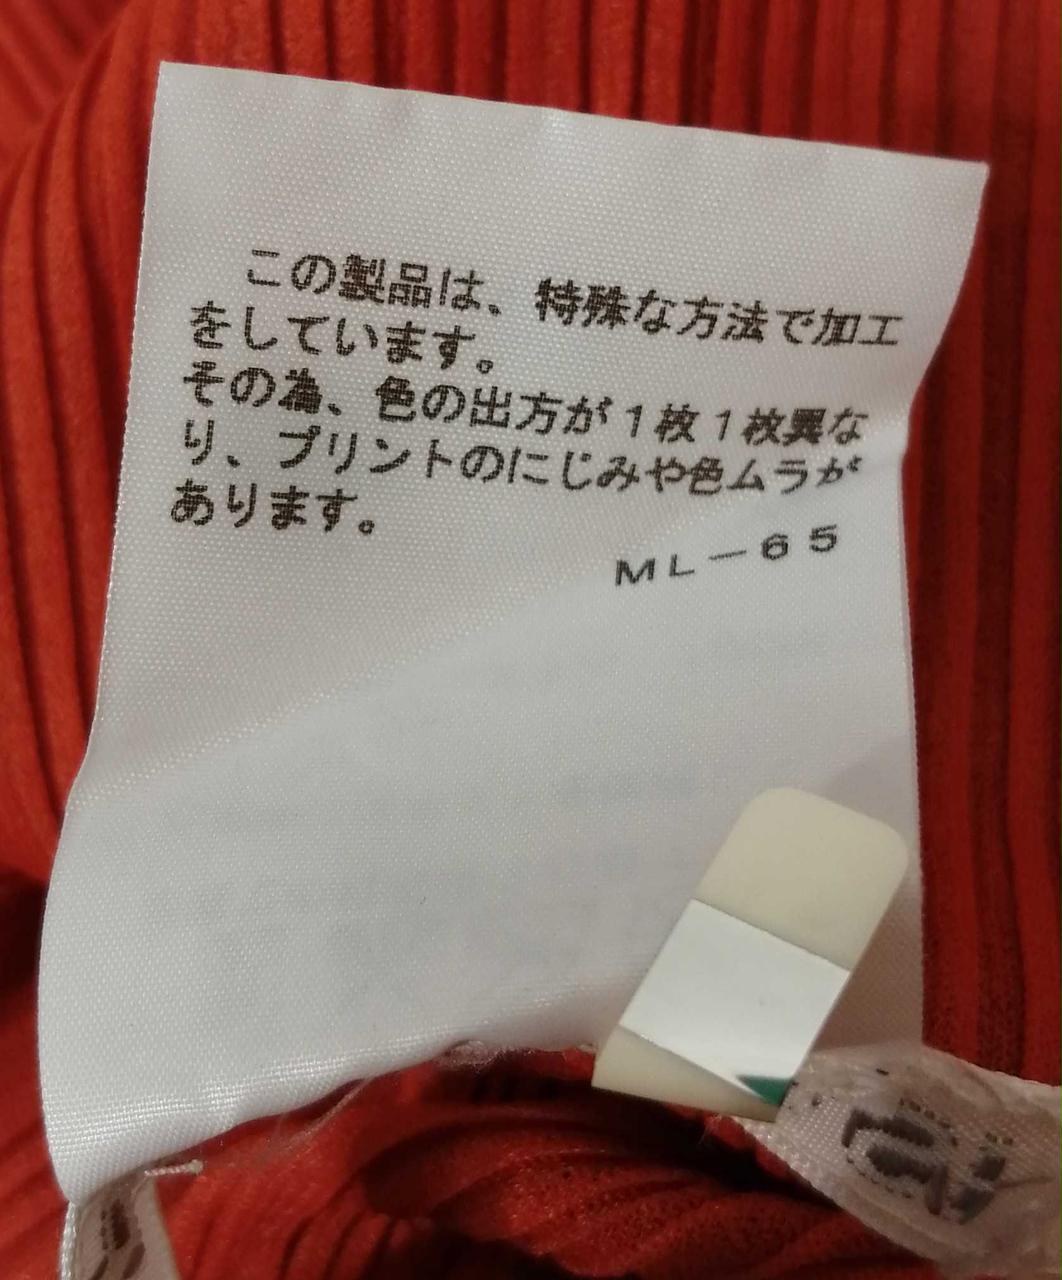 この製品は、特殊な方法で加工
をしています。
その為、色の出方が１枚１枚異な
り、プリントのにじみや色ムラが
あります。
ＭＬ－６５